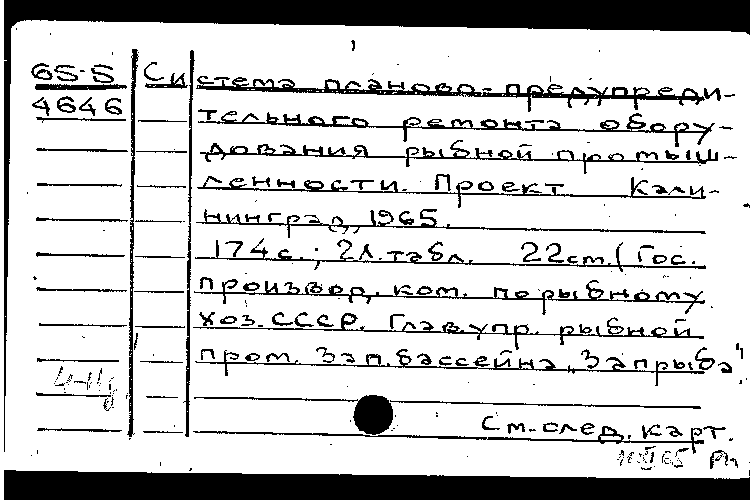 65-5 Система планово-предупреди-
4646 тельного ремонта обору-
дования рыбной промыш-
ленности. Проект. Кали-
нинград, 1965.
174с.; 2л.табл. 22см. (Гос.
производ. ком. по рыбному
хоз. СССР. Глав.упр. рыбной
пром. Зап. бассейна „Запрыба"
См. след. карт.